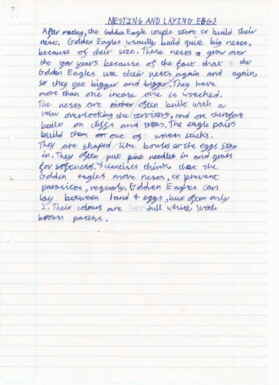 NESTING AND LAYING EGGS
After mating, the Golden Eagle couple start to build their
nest. Golden Eagles usually build quite big nests,
because of their size. These nests grow over
the years because of the fact that the
Golden Eagles use their nests again and again,
so they get bigger and bigger. They have
more than one incase one is wrecked.
The nests are often built with a
view overlooking the territory, and are therefore
built on cliffs and trees. The eagle pairs
build them out of woven sticks.
They are shaped like bowls so the eggs stay
in. They often put pine needles in and grass
for softness. Scientists think that the
Golden eagles move nests, to prevent
parasites, regularly. Golden Eagles can
lay between 1 and 4 eggs, but often only
2. Their colours are dull white with
brown patches.